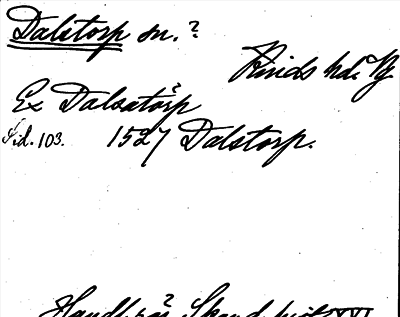 Dalstorp sn.?
Kinds hd. Vg
Ex Dalsatårp
Sid. 103. 1527 Dalstorp.
Handl. rör. Skand. hist XVI